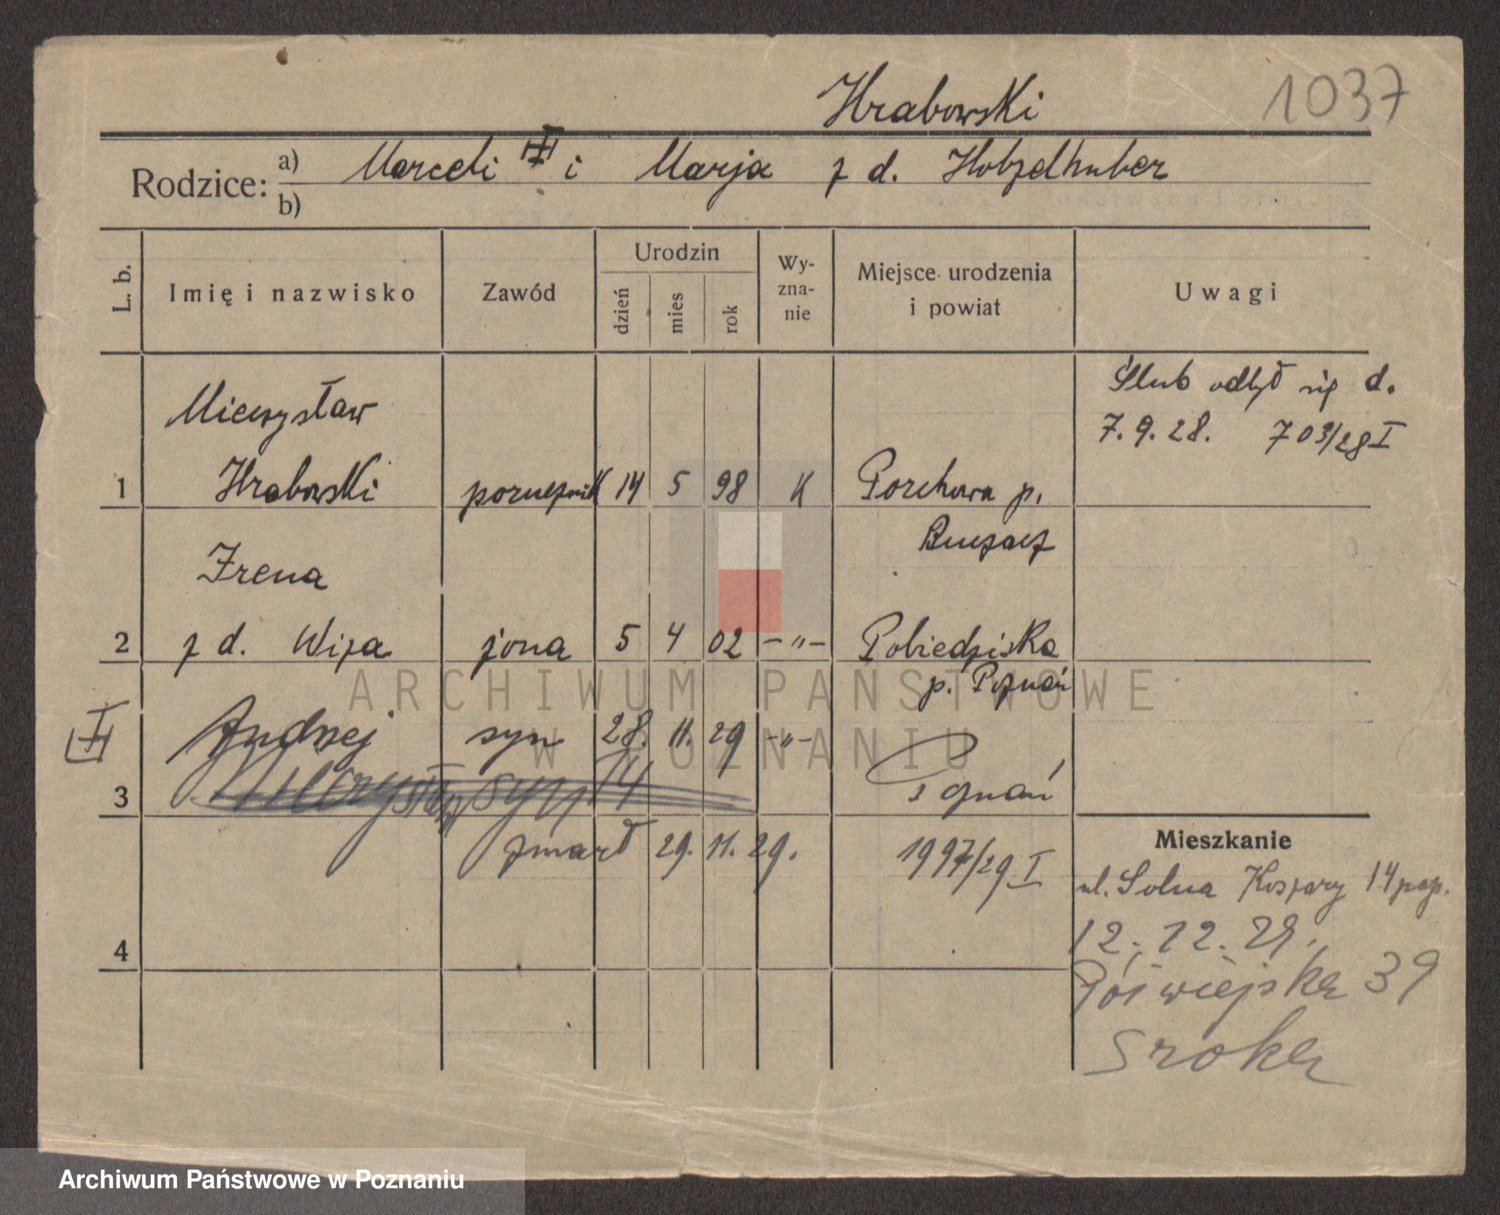 Hrabowski 1037
Rodzice: a) Marceli i Marja z d. Hobzelhuber
b)
L. b. Imię i nazwisko Zawód Urodzin dzień mies rok Wyznanie Miejsce urodzenia i powiat Uwagi
Ślub odbył się d.
7.9.28. 703/28 I
Mieczysław
1 Hrabowski porucznik 14 5 98 K Porchowa p.
Buczacz
Irena
2 z d. Wiza żona 5 4 02 -"- Pobiedziska
p. Poznań
Andrzej syn 28. 11. 29 -"-
3 Mieczysław syn 14 Poznań
zmarł 29. 11. 29. 1997/29 I
Mieszkanie
ul. Solna Koszary 14 pap.
4 12.12.29.
Półwiejska 39
Sroka
ARCHIWUM PAŃSTWOWE
W POZNANIU
Archiwum Państwowe w Poznaniu